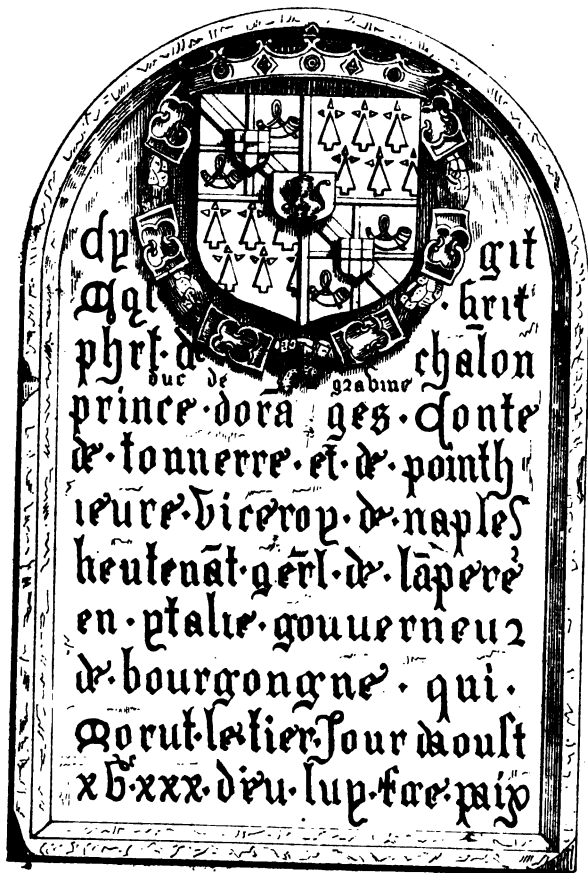 Cy git
phrt · de chalon
duc de grabine
prince · dorā ges · Conte
de · tonnerre · et · de · pointh
ieure · Viceroy · de · naples
lieutenāt · gērl · de · lāpere
en · ytalie · gouuerneur
de · bourgongne · qui ·
Morut · le · tier · Jour daoust
xvᶜ · xxx · dieu · luy · face · paix